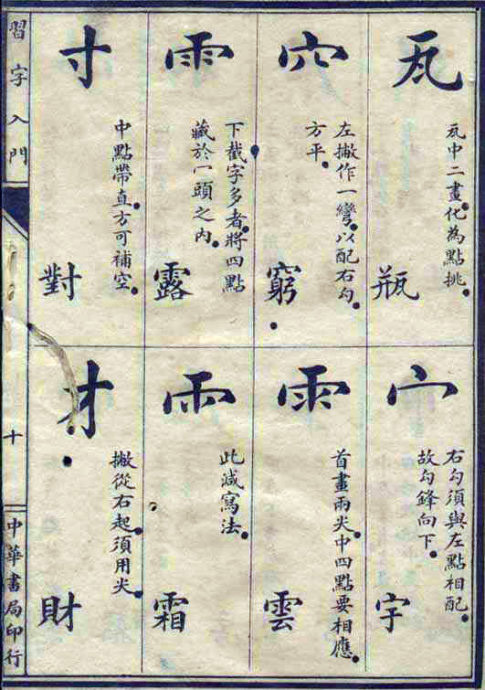 瓦
瓦中二畫。化為點挑。
瓶
穴
左撇作一彎。以配右勾。
方平。
窮
雨
下截字多者。將四點
藏於一頭之內。
露
寸
中點帶直。方可補空。
對
宀
右勾須與左點相配。
故勾鋒向下。
字
雨
首畫兩尖。中四點要相應。
雲
雨
此減寫法。
霜
才
撇從右起。須用尖。
財
習字入門
十
中華書局印行